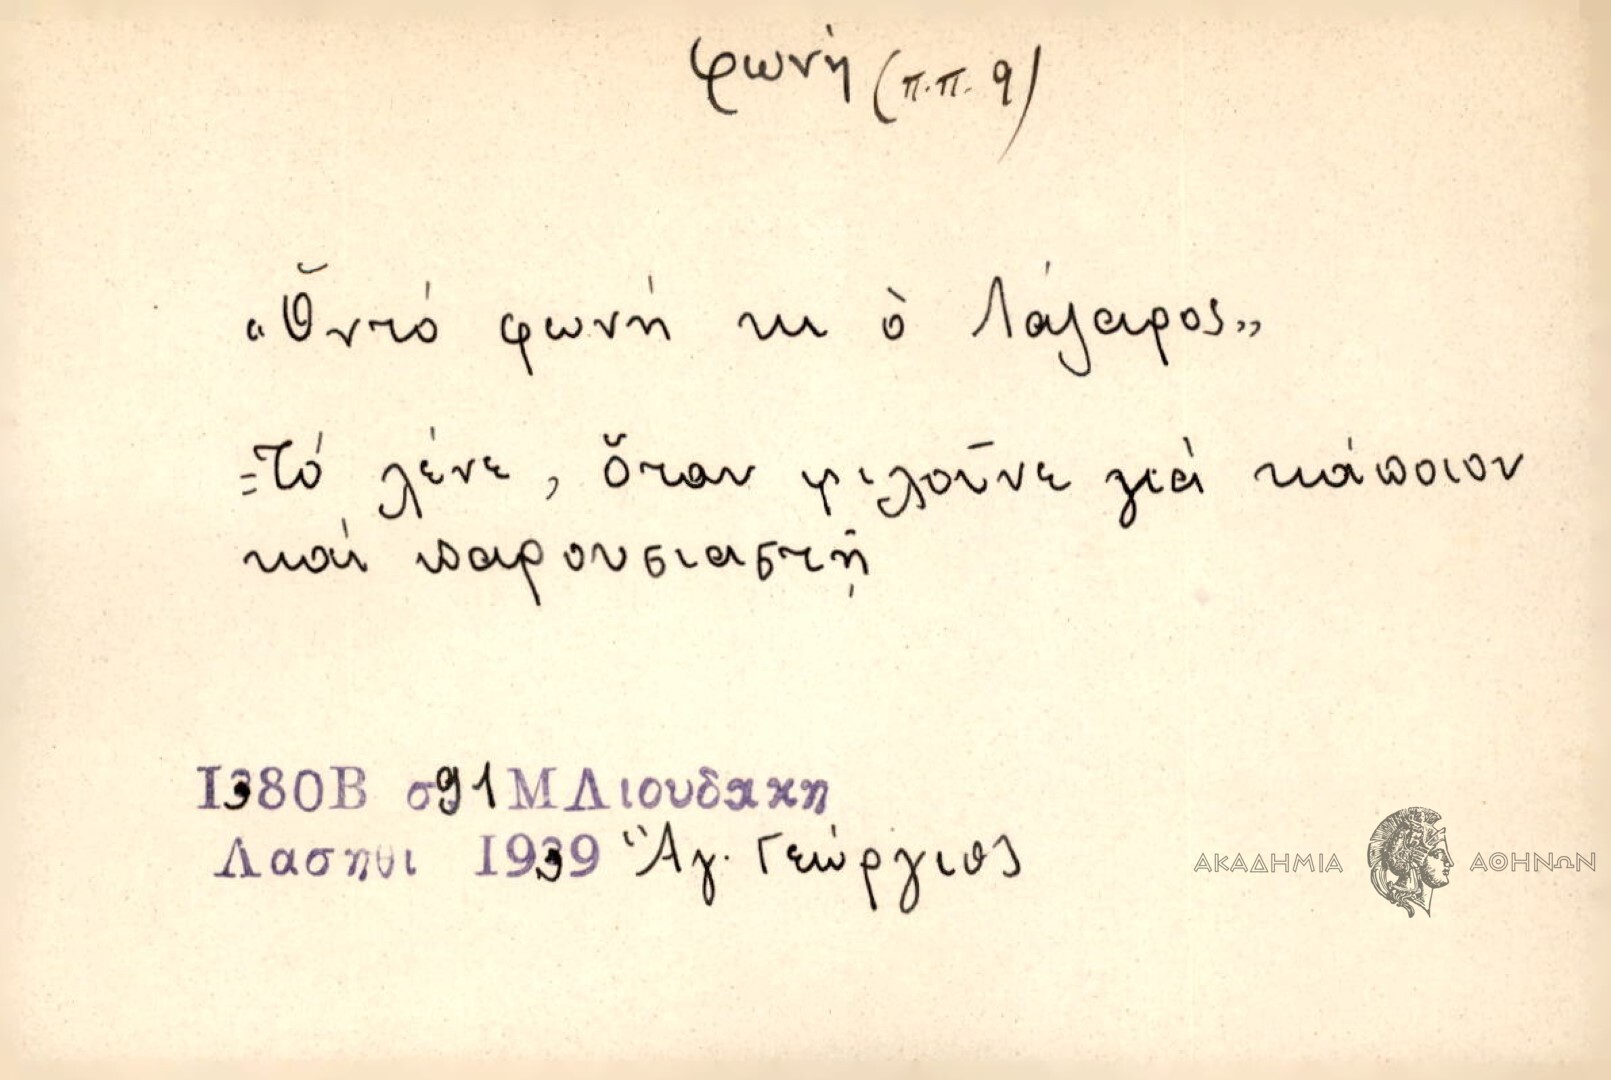 φωνή (π.π. 9)
«Ὀντό φωνή κι ὁ Λάζαρος»
=Τό λένε, ὅταν μιλοῦνε γιά κάποιον
καί παρουσιαστῇ
1380Β σ91 Μ Λιουδακη
Λασηθι 1939 Ἅγ. Γεώργιος
ΑΚΑΔΗΜΙΑ ΑΘΗΝΩΝ